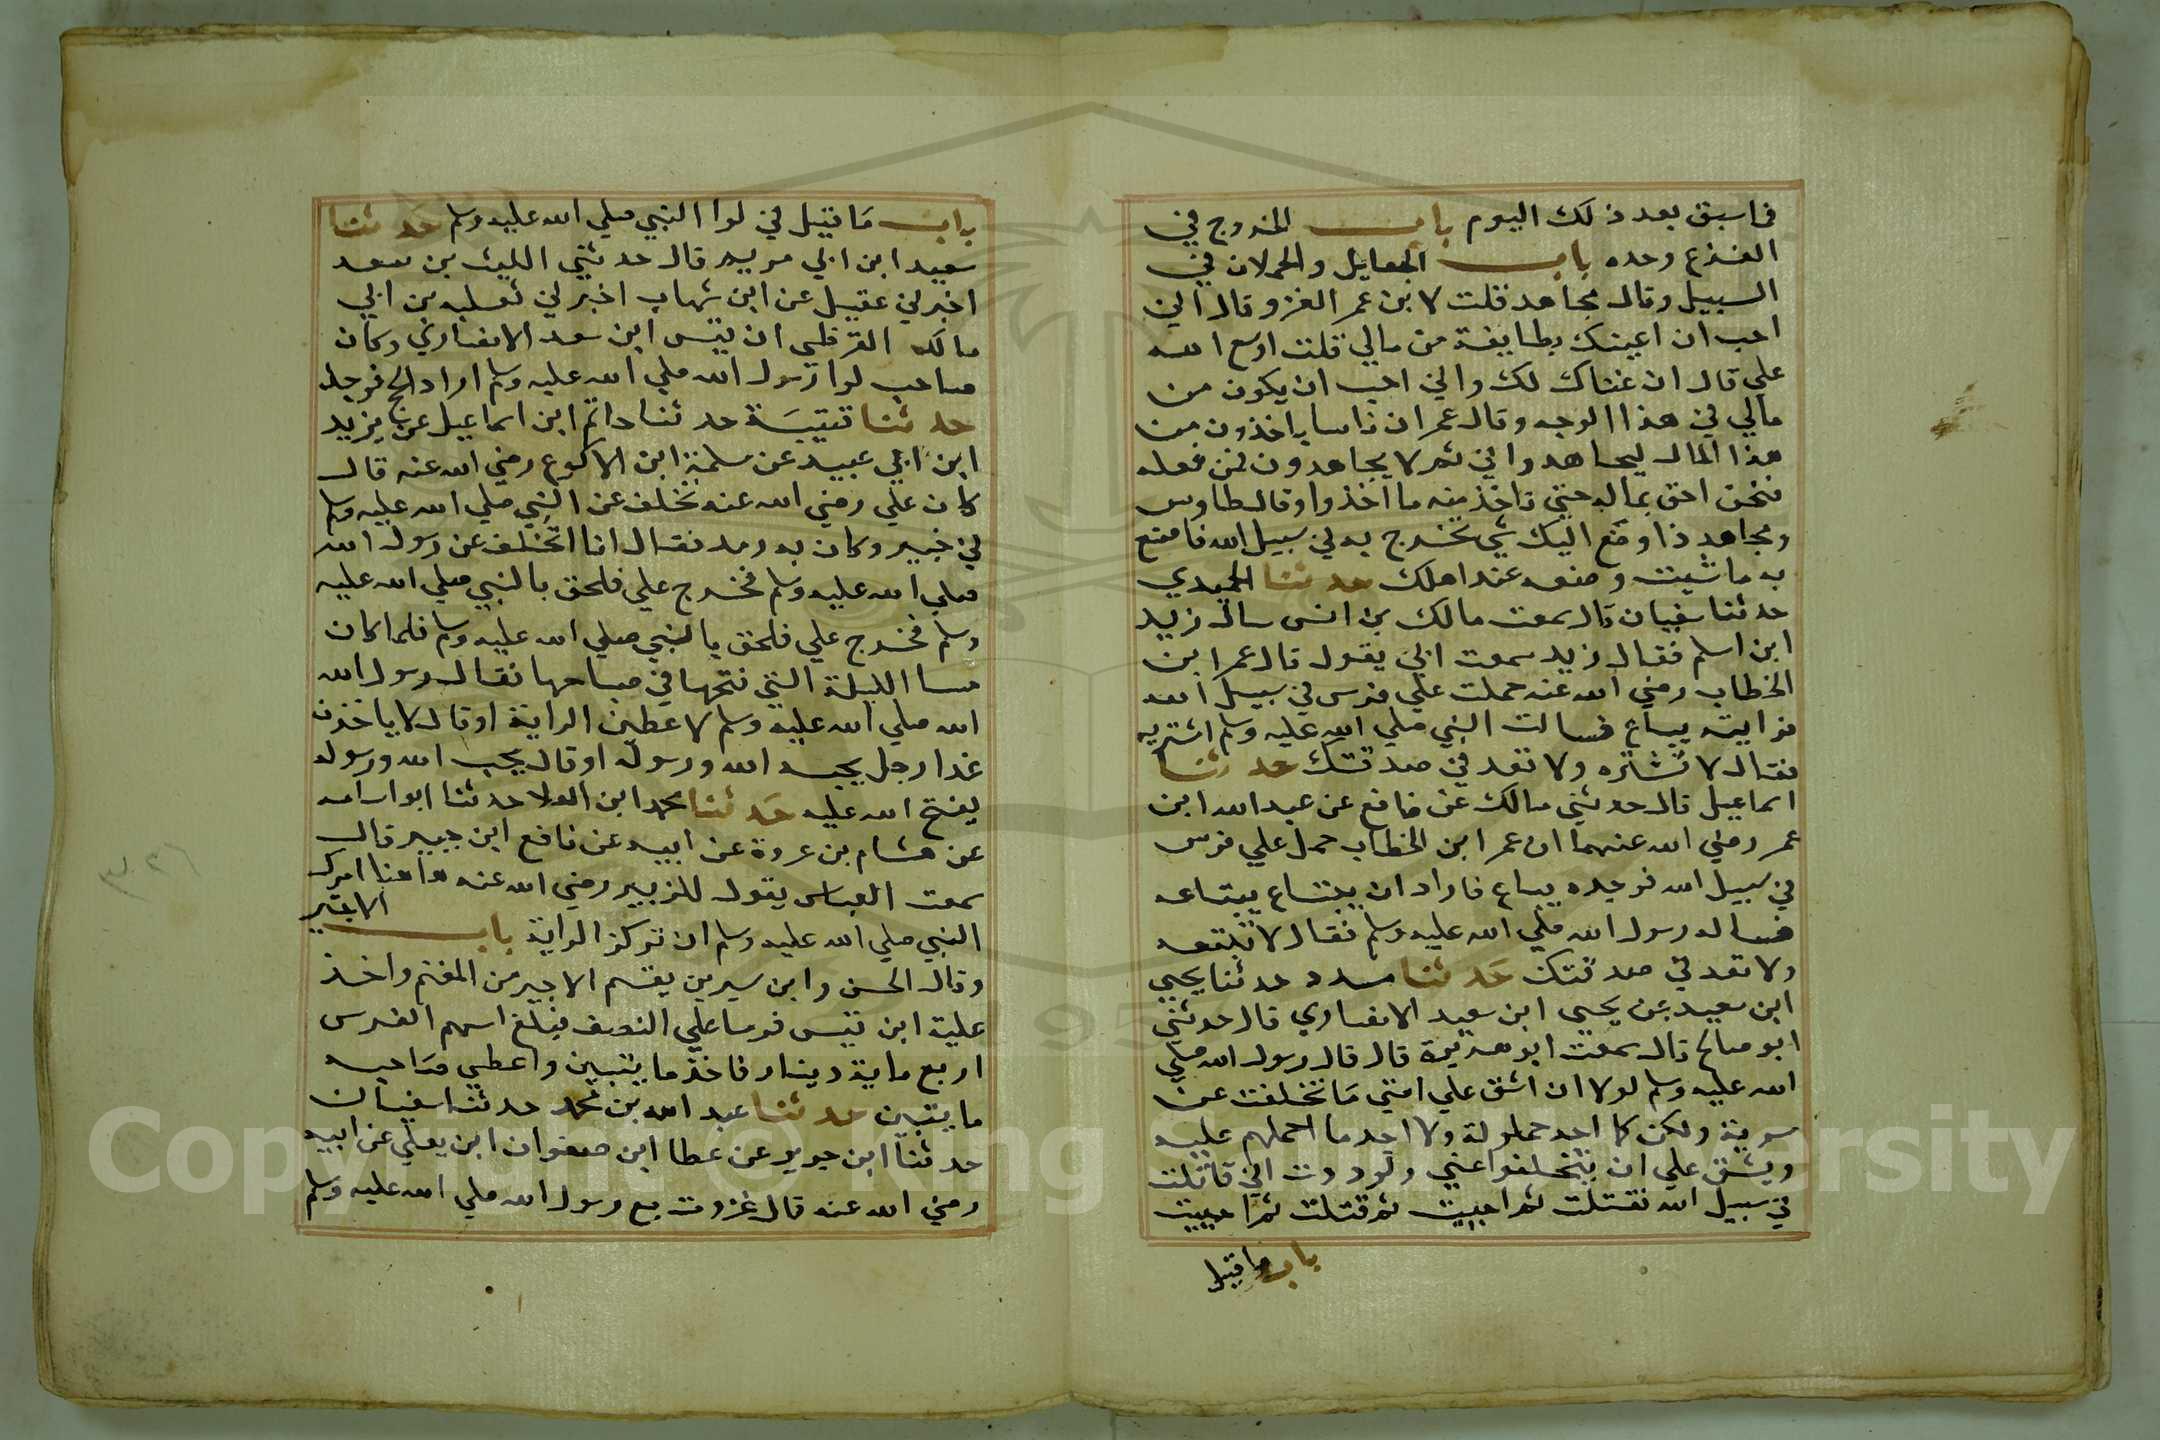 فما سبق بعد ذلك اليوم باب الخروج في
الفزع وحده باب الجعايل والحملان في
السبيل وقال مجاهد قلت لابن عمر الغزو قال اني
احب ان اعينك بطايفة من مالي قلت اوسع الله
علي قال ان غناك لك واني احب ان يكون من
مالي في هذا الوجه وقال عمر ان ناسا ياخذون من
هذا المال ليجاهدوا في ثم لا يجاهدون فمن فعله
فنحن احق بماله حتى ناخذ منه ما اخذ وقال طاوس
ومجاهد ذا وقع اليك شي تخرج به في سبيل الله فاصنع
به ما شيت وضعه عند اهلك حدثنا الحميدي
حدثنا سفيان قال سمعت مالك بن انس سال زيد
ابن اسلم فقال زيد سمعت ابي يقول قال عمر ابن
الخطاب رضي الله عنه حملت علي فرس في سبيل الله
فرايته يباع فسالت النبي صلي الله عليه وسلم اشتريه
فقال لا تشتره ولا تعد في صدقتك حدثنا
اسماعيل قال حدثني مالك عن نافع عن عبد الله ابن
عمر رضي الله عنهما ان عمر ابن الخطاب حمل علي فرس
في سبيل الله فوجده يباع فاراد ان يبتاع يبتاعه
فساله رسول الله صلي الله عليه وسلم فقال لا تبتعه
ولا تعد في صدقتك حدثنا مسدد حدثنا يحيي
ابن سعيد عن يحيي ابن سعيد الانصاري قال حدثني
ابو صالح قال سمعت ابو هريرة قال قال رسول الله صلي
الله عليه وسلم لولا ان اشق علي امتي ما تخلفت عن
سرية ولكن لا اجد حمولة ولا اجد ما احملهم عليه
ويشق علي ان يتخلفوا عني ولوددت اني قاتلت
في سبيل الله فقتلت ثم احييت ثم قتلت ثم احييت
باب ما قيل
باب ما قيل في لوا النبي صلي الله عليه وسلم حدثنا
سعيد ابن ابي مريم قال حدثني الليث بن سعد
اخبرني عقيل عن ابن شهاب اخبرني ثعلبه بن ابي
مالك القرظي ان قيس ابن سعد الانصاري وكان
صاحب لوا رسول الله صلي الله عليه وسلم اراد الحج فرجل
حدثنا قتيبة حدثنا حاتم ابن اسماعيل عن يزيد
ابن ابي عبيد عن سلمة ابن الاكوع رضي الله عنه قال
كان علي رضي الله عنه تخلف عن النبي صلي الله عليه وسلم
في خيبر وكان به رمد فقال انا اتخلف عن رسول الله
صلي الله عليه وسلم فخرج علي فلحق بالنبي صلي الله عليه
وسلم فخرج علي فلحق بالنبي صلي الله عليه وسلم فلما كان
مسا الليلة التي فتحها في صباحها فقال رسول الله
الله صلي الله عليه وسلم لاعطين الراية او قال لا ياخذن
غدا رجل يحبه الله ورسوله او قال يحب الله ورسوله
يفتح الله عليه حدثنا محمد ابن العلا حدثنا ابو اسامه
عن هشام بن عروة عن ابيه عن نافع ابن جبير قال
سمعت العباس يقول للزبير رضي الله عنه هاهنا امرك
النبي صلي الله عليه وسلم ان تركز الراية باب الاجير
وقال الحسن وابن سيرين يقسم الاجير من المغنم واخذ
علية ابن قيس فرسا علي النصف فبلغ اسهم الفرس
اربع ماية دينار فاخذ مايتين واعطي صاحبه
مايتين حدثنا عبد الله بن محمد حدثنا سفيان
حدثنا ابن جريج عن عطا ابن صفوان ابن يعلي عن ابيه
رضي الله عنه قال غزوت مع رسول الله صلي الله عليه وسلم
Copyright © King Saud University